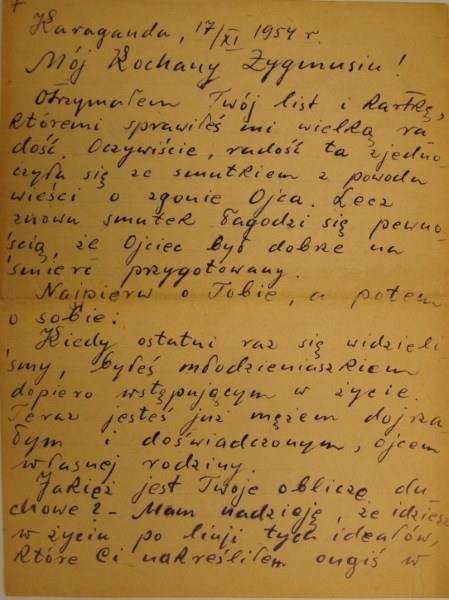 Karaganda, 17/XI 1954 r.
Mój Kochany Zygmusiu!
Otrzymałem Twój list i kartkę,
któremi sprawiłeś mi wielką ra-
dość. Oczywiście, radość ta zjedno-
czyła się ze smutkiem z powodu
wieści o zgonie Ojca. Lecz
znowu smutek łagodzi się pewno-
ścią, że Ojciec był dobrze na
śmierć przygotowany.
Najpierw o Tobie, a potem
o sobie:
Kiedy ostatni raz się widzieli-
śmy, byłeś młodzieniaszkiem
dopiero wstępującym w życie.
Teraz jesteś już mężem dojrza-
łym i doświadczonym, ojcem
własnej rodziny.
Jakież jest Twoje oblicze du-
chowe? – Mam nadzieję, że idziesz
w życiu po linji tych ideałów,
które Ci nakreśliłem ongiś w